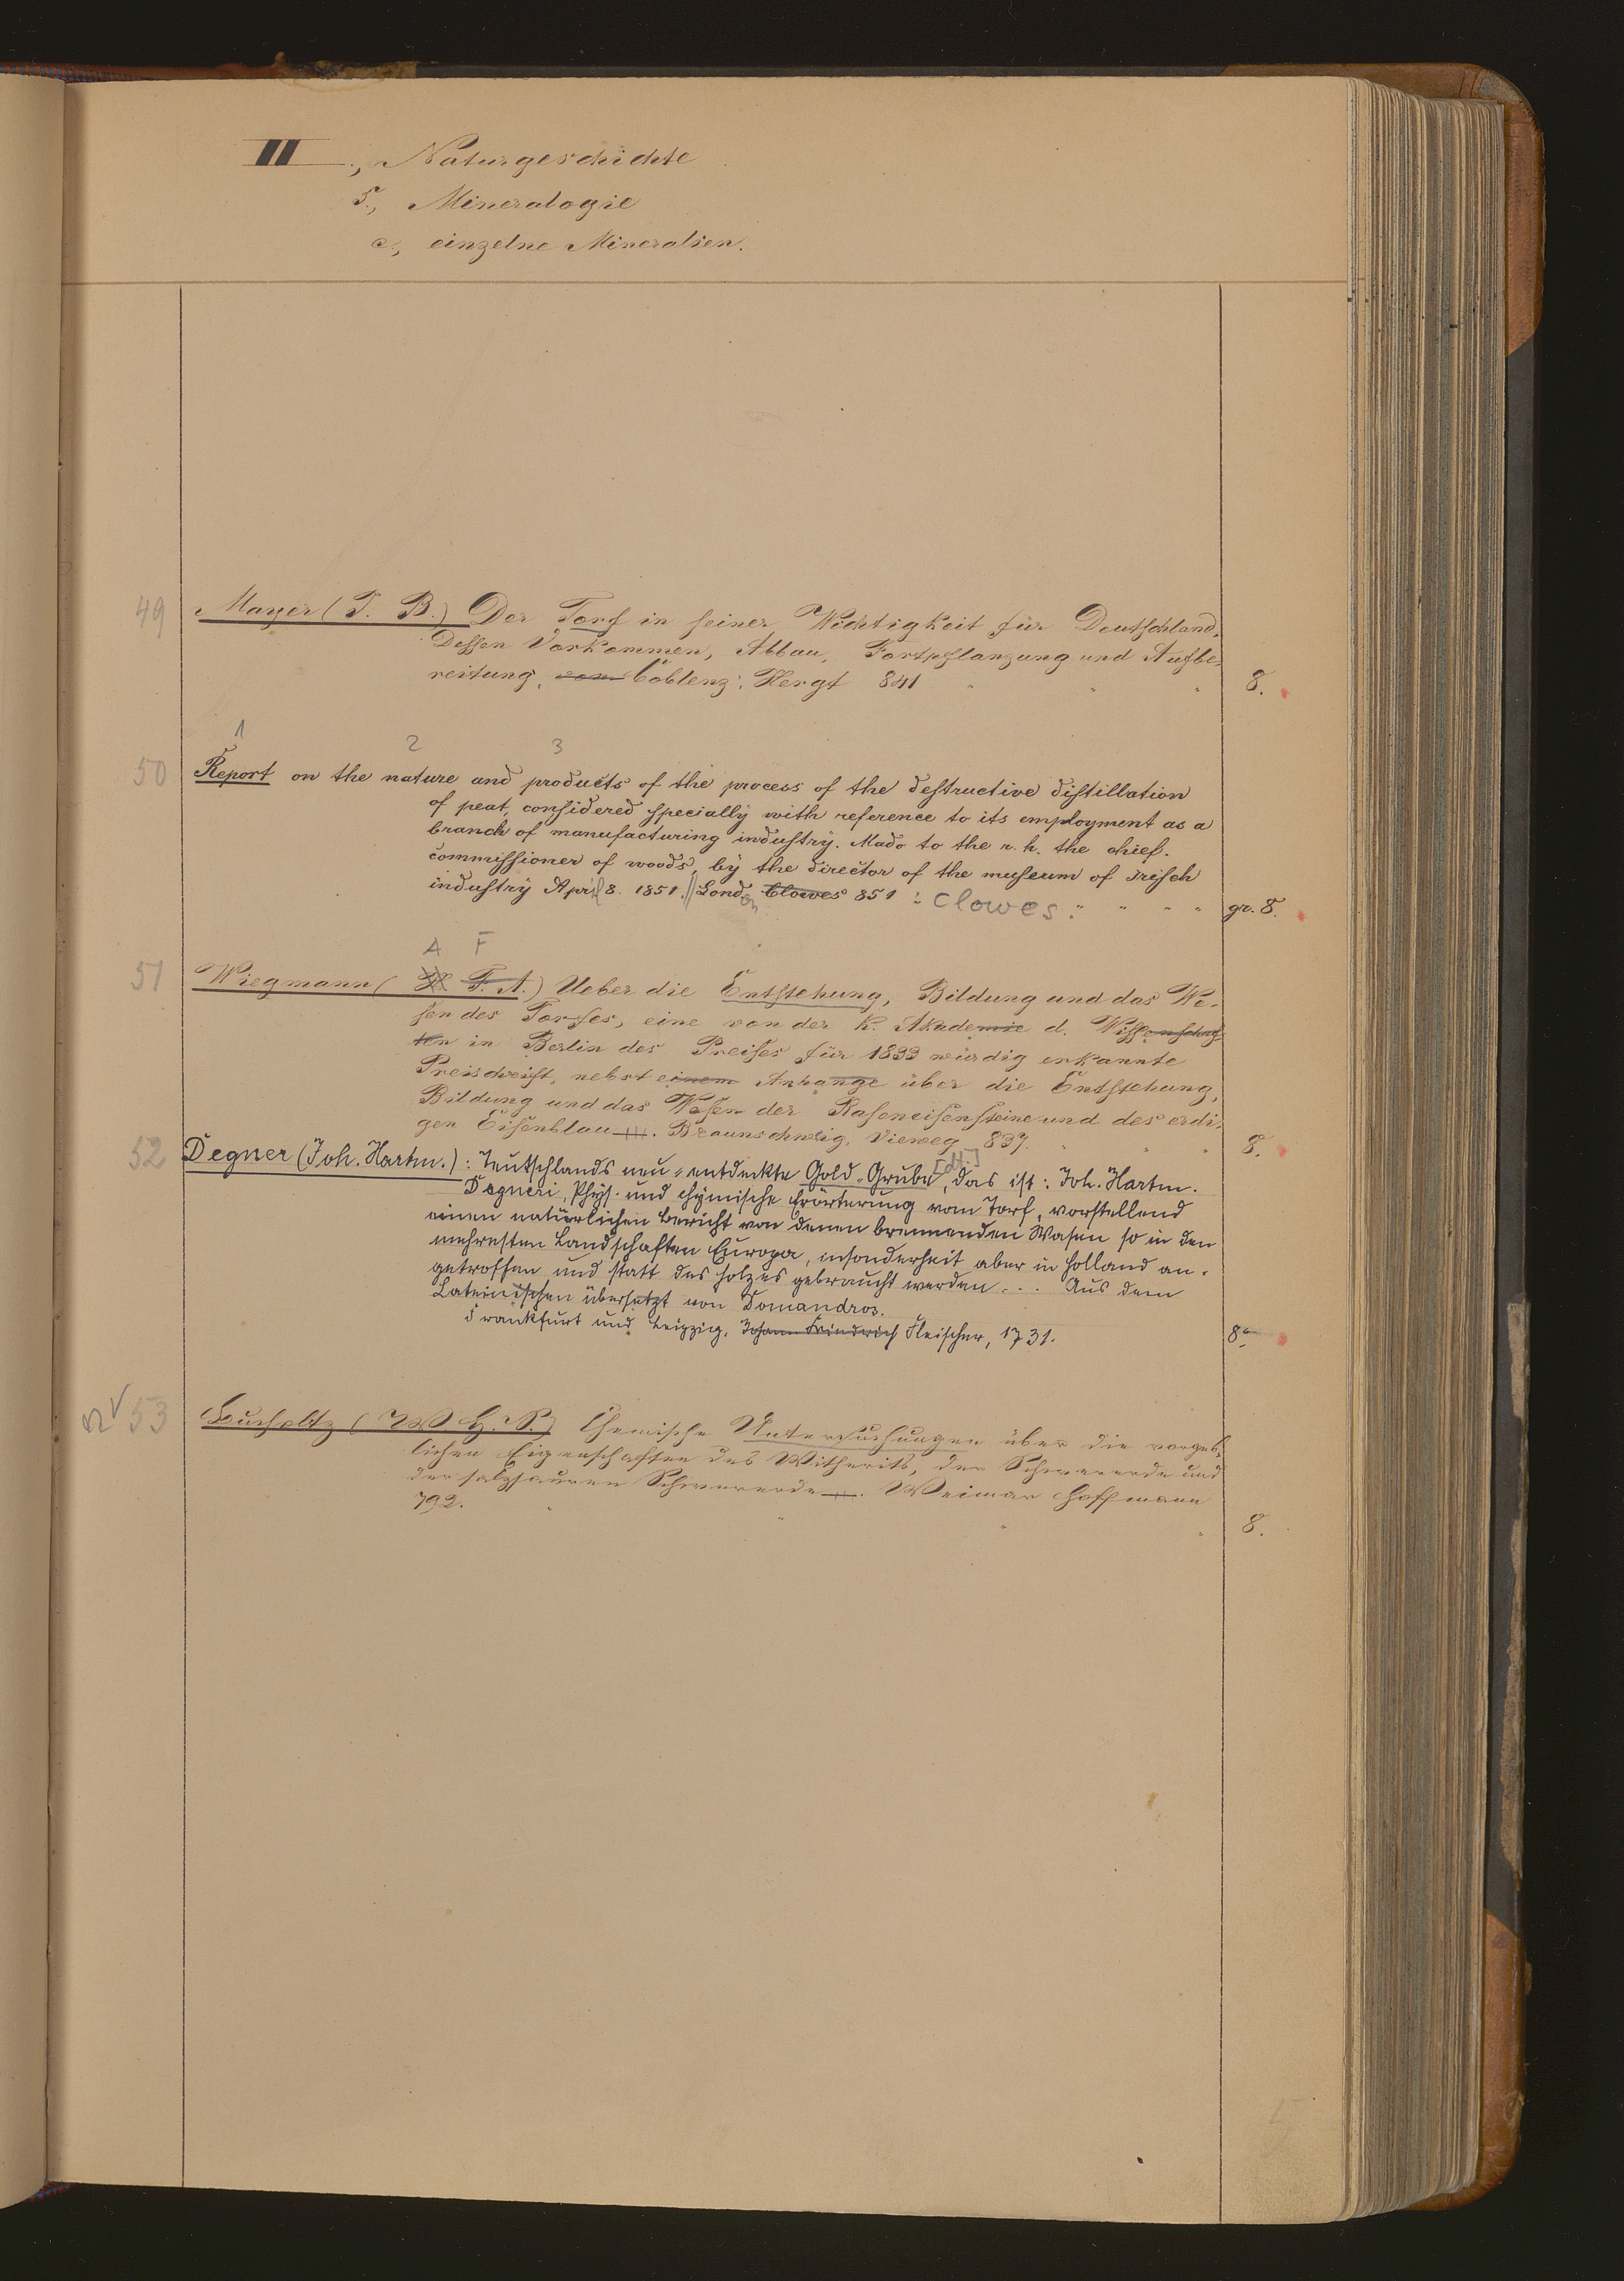 II., Naturgeschichte
5., Mineralogie
c., einzelne Mineralien.
49 Mayer (J. B.) Der Torf in seiner Wichtigkeit für Deutschland.
Dessen Vorkommen, Abbau, Fortpflanzung und Aufbe-
reitung. Coblenz: Hergt 841 " " " 8.
1 2 3
50 Report on the nature and products of the process of the destructive distillation
of peat, considered specially with reference to its employment as a
branch of manufacturing industry. Made to the r. h. the chief.
commissioner of woods, by the director of the museum of Irisch
industry April 8. 1851. // London Clowes 851 : Clowes. " " " " gr. 8.
A F
51 Wiegmann (H F. A.) Ueber die Entstehung, Bildung und das We-
sen des Torfes, eine von der K. Akademie d. Wissenschaf-
ten in Berlin des Preises für 1833 würdig erkannte
Preisschrift, nebst einem Anhange über die Entstehung,
Bildung und das Wesen der Raseneisensteine und des erdi-
gen Eisenblau. Braunschweig, Vieweg 837. " " " 8.
52 Degner (Joh. Hartm.): Teutschlands neu-entdeckte Gold-Grube [dt.], das ist: Joh. Hartm.
Degneri, Phys. und chymische Erörterung vom Torf, vorstellend
einen natürlichen Bericht von denen brennenden Wasen so in den
mehresten Landschaften Europa, insonderheit aber in Holland an-
getroffen und statt des Holzes gebraucht werden... Aus dem
Lateinischen übersetzt von Tomandros.
Frankfurt und Leipzig, Johann Friedrich Fleischer, 1731. 8°
53 Bucholtz (W. H. S.) Chemische Untersuchungen über die vorgeb-
lichen Eigenschaften des Witherits, der Schwererde und
der salzsauren Schwererde. Weimar Hoffmann
792. " " " " 8.